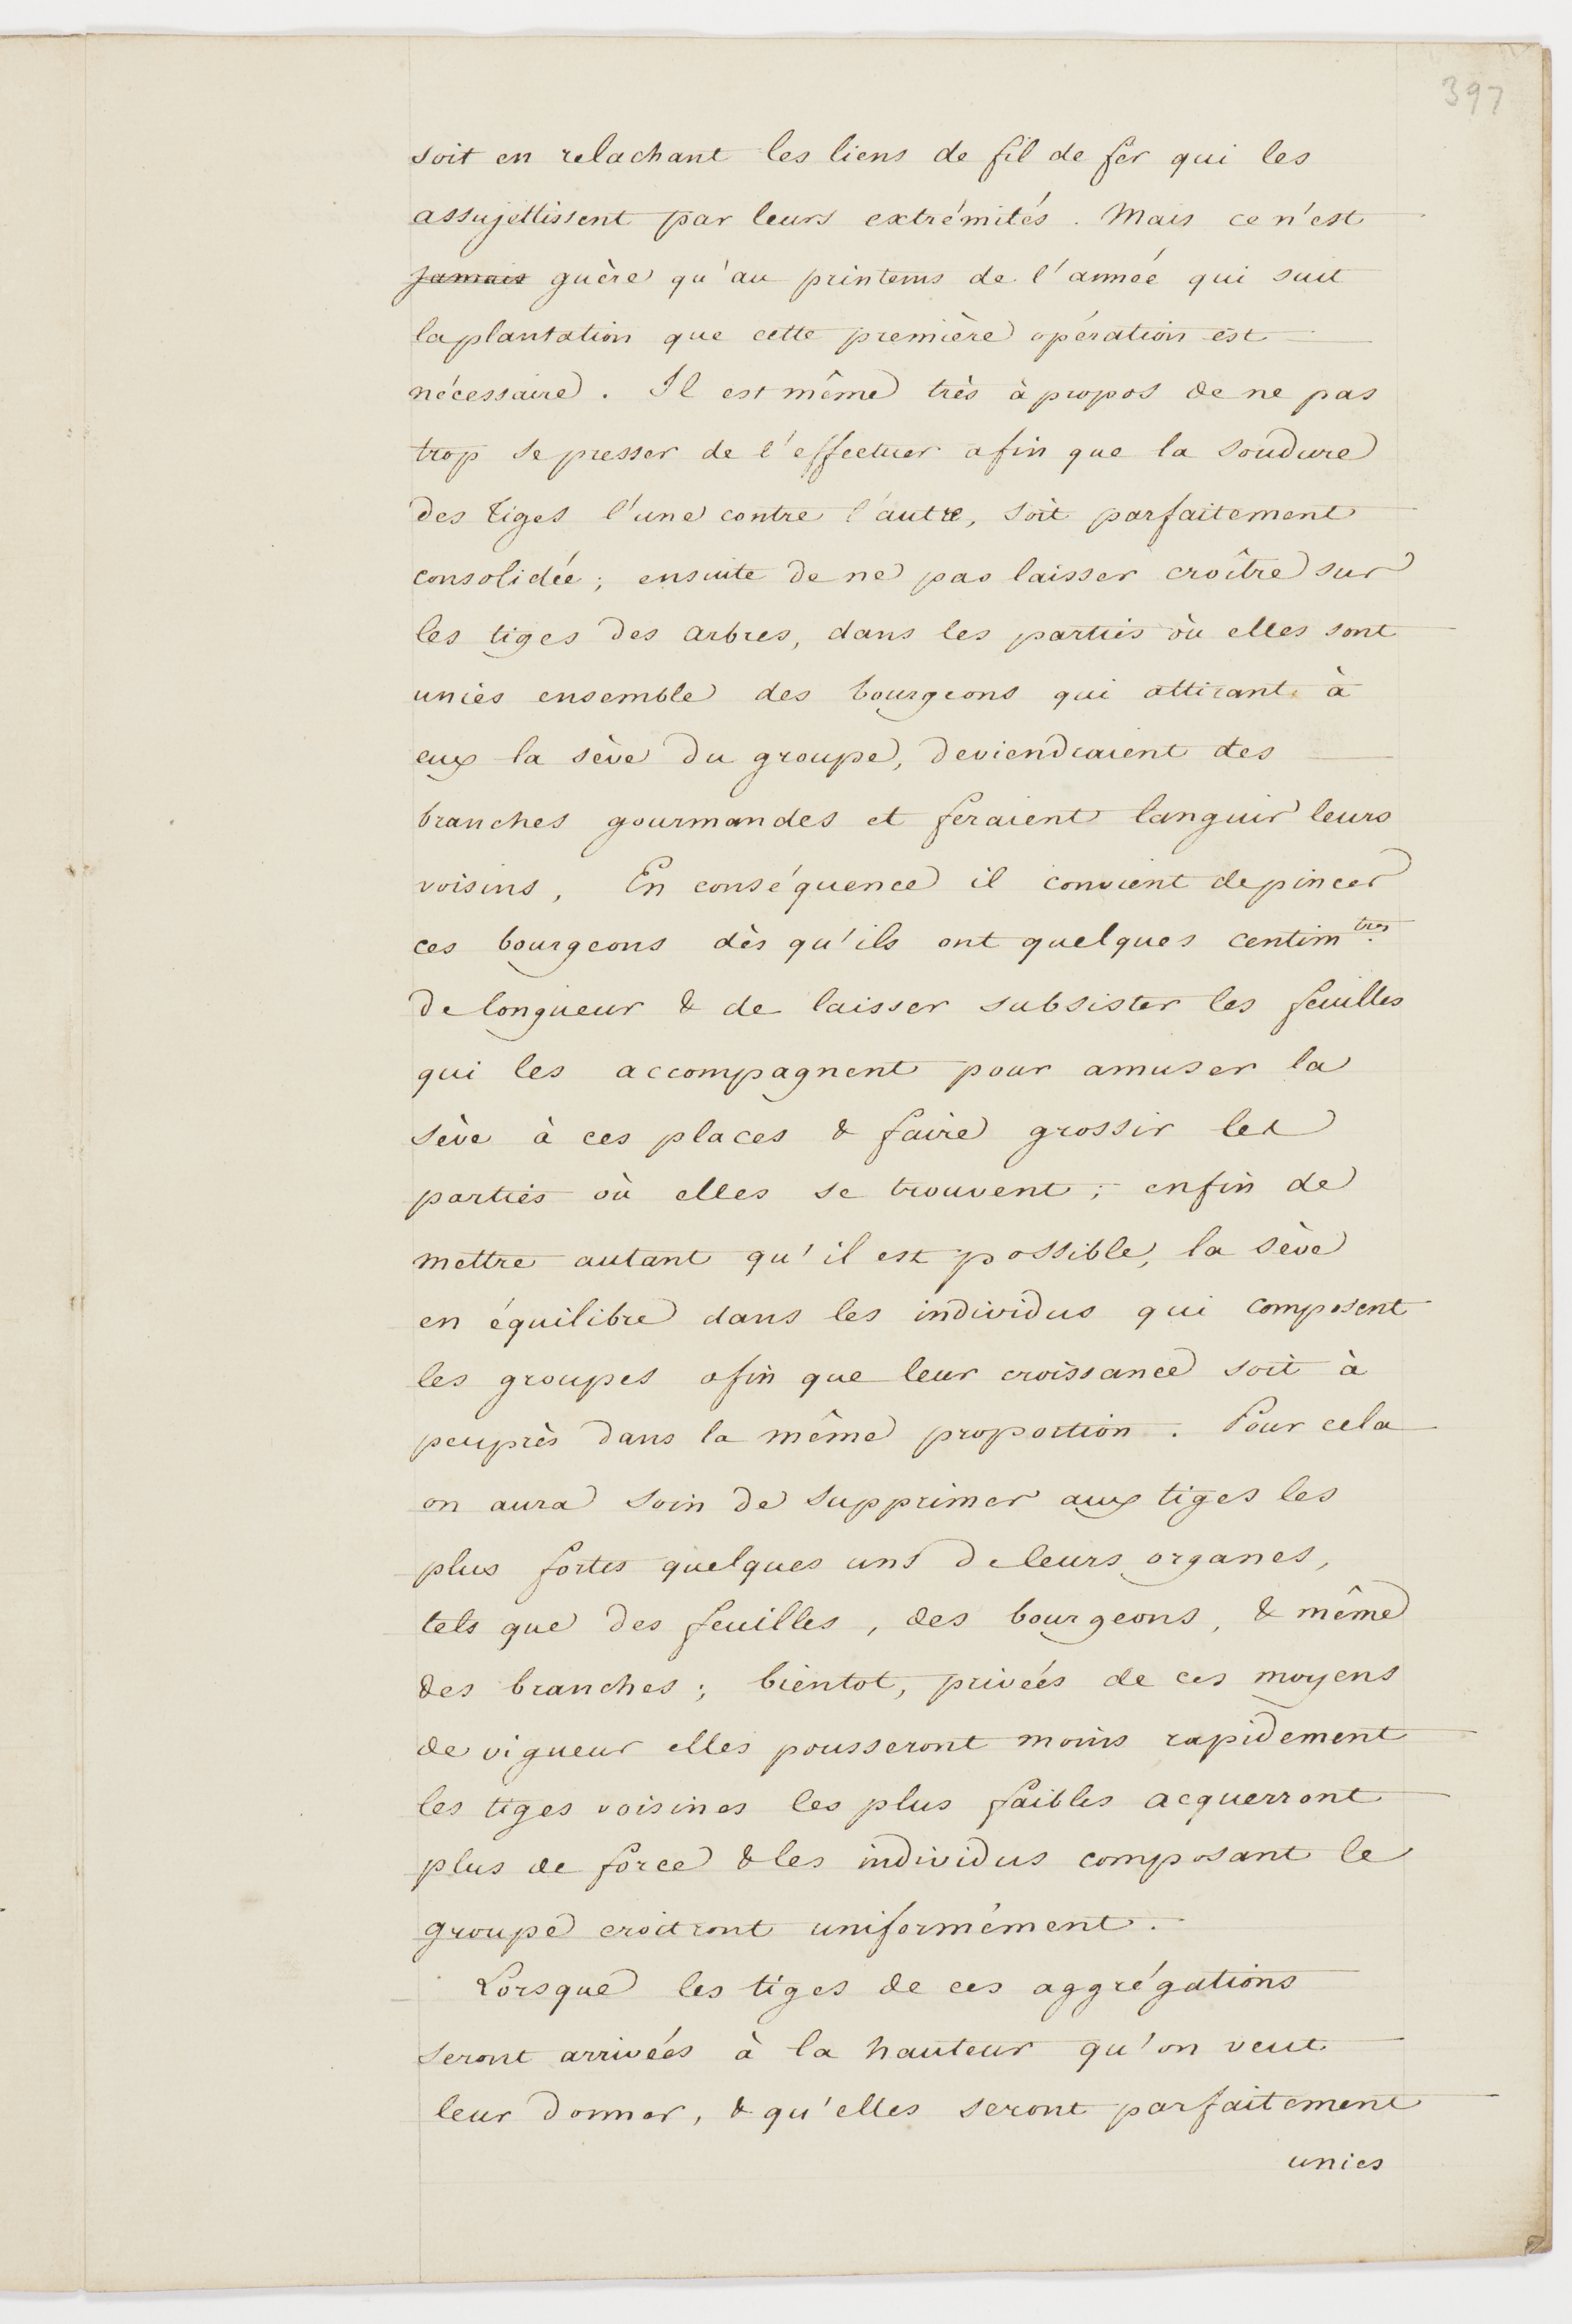 397
soit en relachant les liens de fil de fer qui les
assujettissent par leurs extrémités. Mais ce n'est
jamais guère qu'au printems de l'année qui suit
la plantation que cette première opération est
nécessaire. Il est même très à propos de ne pas
trop se presser de l'effectuer afin que la soudure
des tiges l'une contre l'autre, soit parfaitement
consolidée; ensuite de ne pas laisser croître sur
les tiges des arbres, dans les parties où elles sont
unies ensemble des bourgeons qui attirant à
eux la sève du groupe, deviendraient des
branches gourmandes et feraient languir leurs
voisins, En conséquence il convient de pincer
ces bourgeons dès qu'ils ont quelques centim.tres
de longueur & de laisser subsister les feuilles
qui les accompagnent pour amuser la
sève à ces places & faire grossir les
parties où elles se trouvent; enfin de
mettre autant qu'il est possible, la sève
en équilibre dans les individus qui composent
les groupes afin que leur croissance soit à
peuprès dans la même proportion. Pour cela
on aura soin de supprimer aux tiges les
plus fortes quelques uns de leurs organes,
tels que des feuilles, des bourgeons, & même
des branches; bientot, privées de ces moyens
de vigueur elles pousseront moins rapidement
les tiges voisines les plus faibles acquerront
plus de force & les individus composant le
groupe croitront uniformément.
Lorsque les tiges de ces aggrégations
seront arrivées à la hauteur qu'on veut
leur donner, & qu'elles seront parfaitement
unies